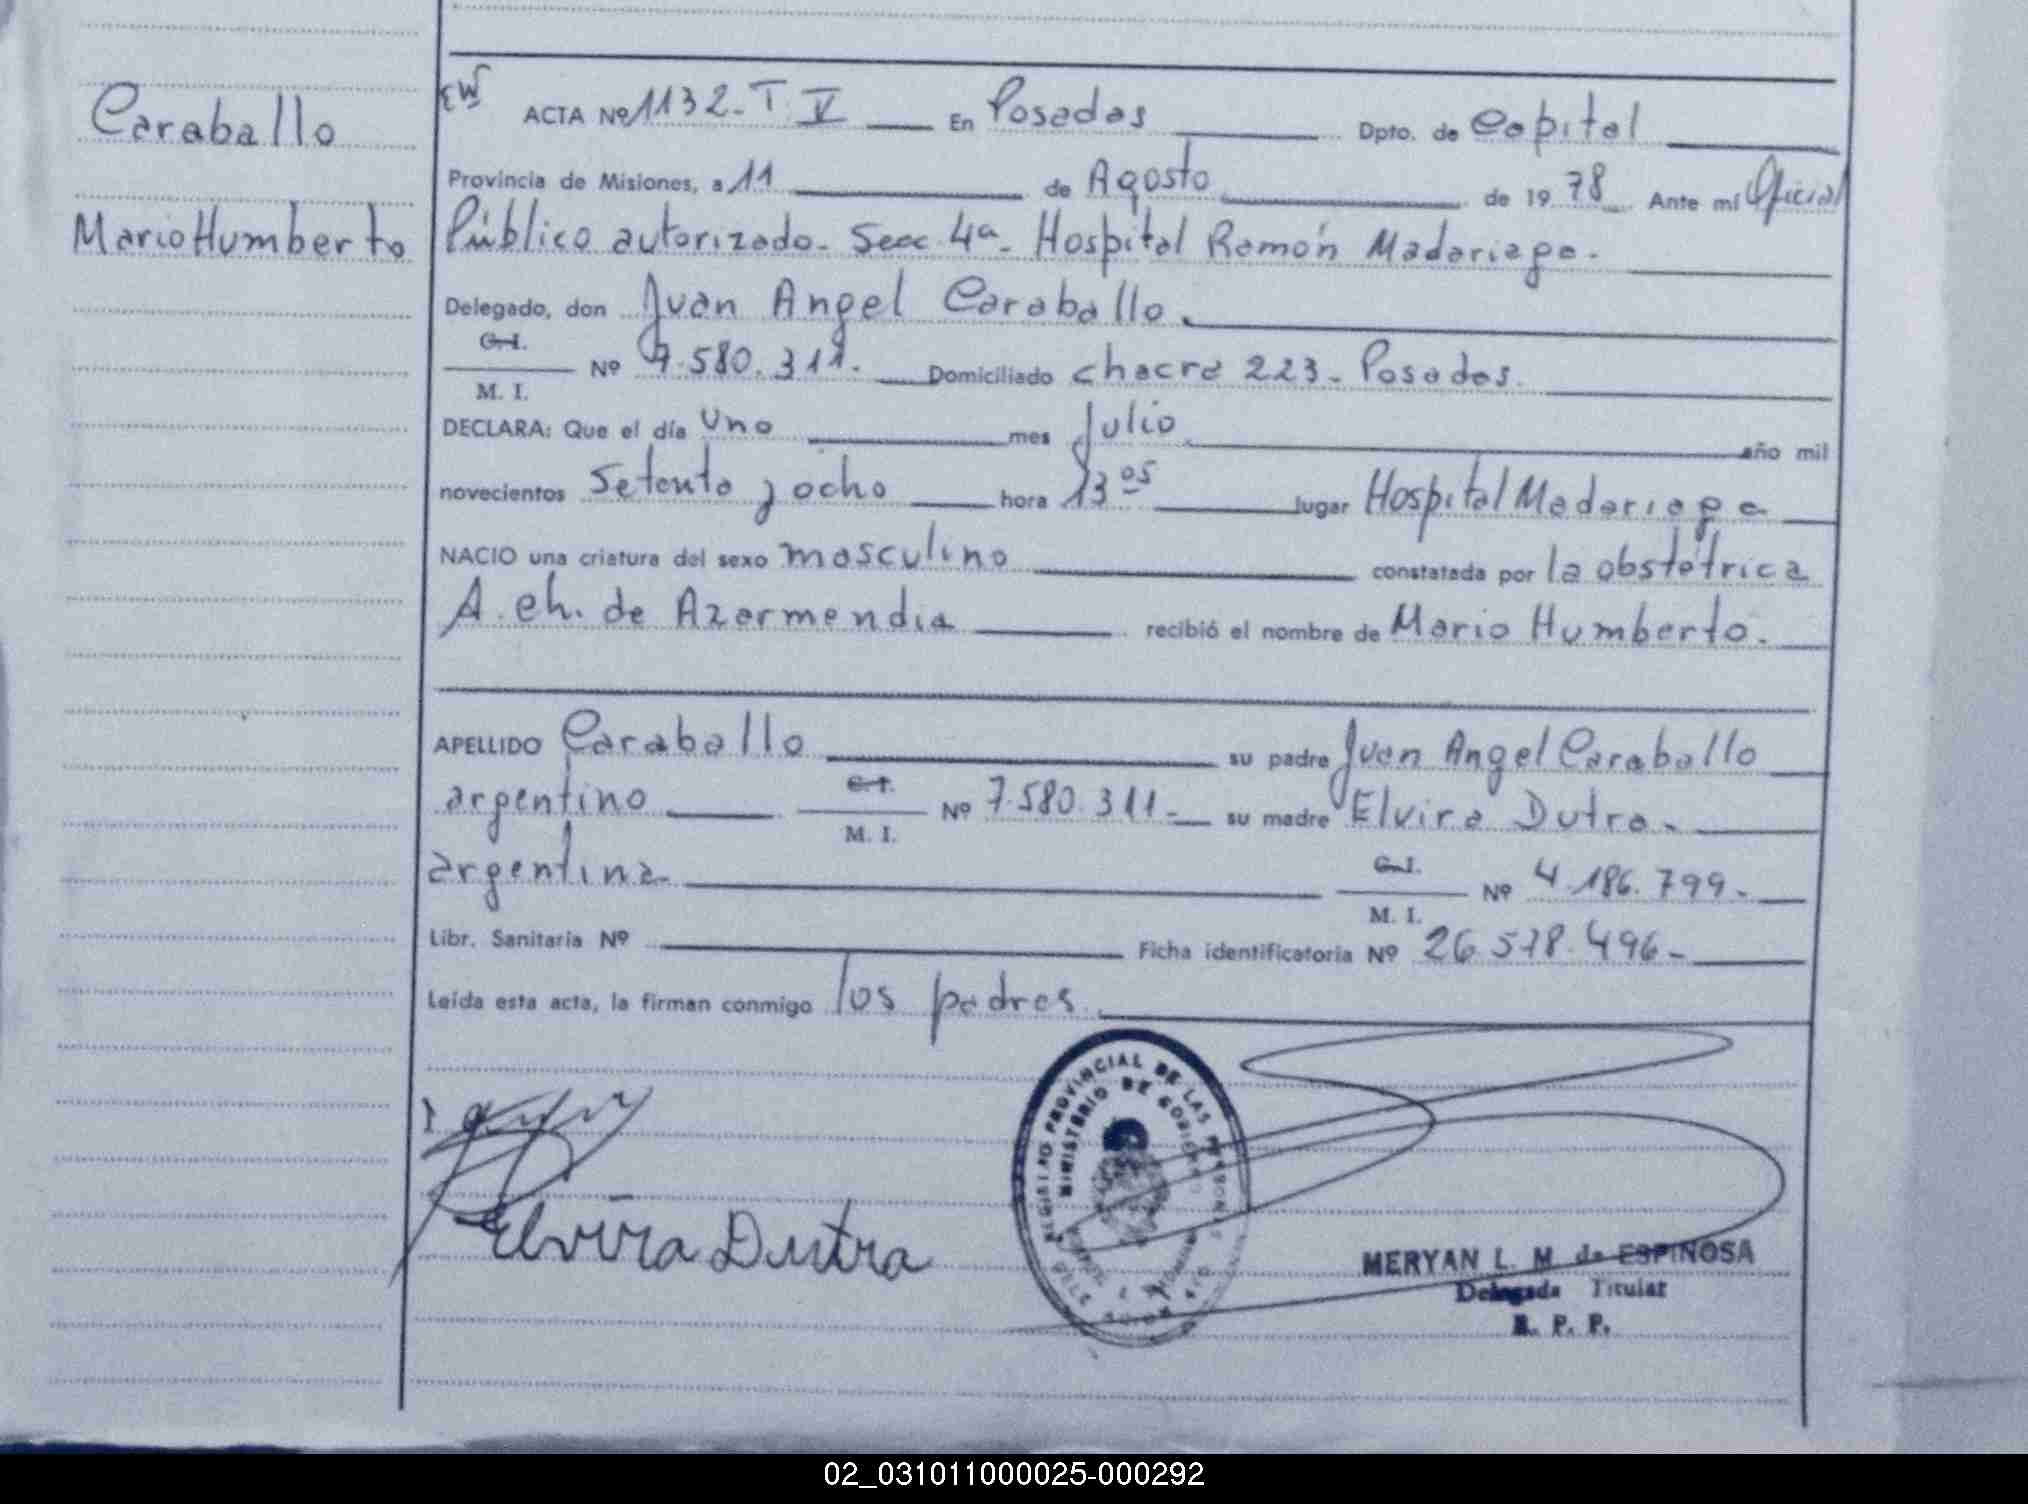 Caraballo
Mario Humberto
ACTA Nº 1132 - T. V En Posadas Dpto. de Capital
Provincia de Misiones, a 11 de Agosto de 1978 Ante mí Oficial
Público autorizado. Secc. 4ª - Hospital Ramón Madariaga.
Delegado, don Juan Angel Caraballo.
C. I.
M. I. Nº 7.580.311. Domiciliado chacra 223 - Posadas.
DECLARA: Que el día uno mes Julio año mil
novecientos Setenta y ocho hora 13 05 lugar Hospital Madariaga
NACIO una criatura del sexo masculino constatada por la obstétrica
A. Ch. de Azarmendia recibió el nombre de Mario Humberto.
APELLIDO Caraballo su padre Juan Angel Caraballo
argentino C. I. M. I. Nº 7.580.311 - su madre Elvira Dutra.
argentina C. I. M. I. Nº 4.186.799 -
Libr. Sanitaria Nº Ficha identificatoria Nº 26.578.496 -
Leída esta acta, la firman conmigo los padres.
REGISTRO PROVINCIAL DE LAS PERSONAS
MINISTERIO DE GOBIERNO
Elvira Dutra
MERYAN L. M. de ESPINOSA
Delegada Titular
R. P. P.
02_031011000025-000292